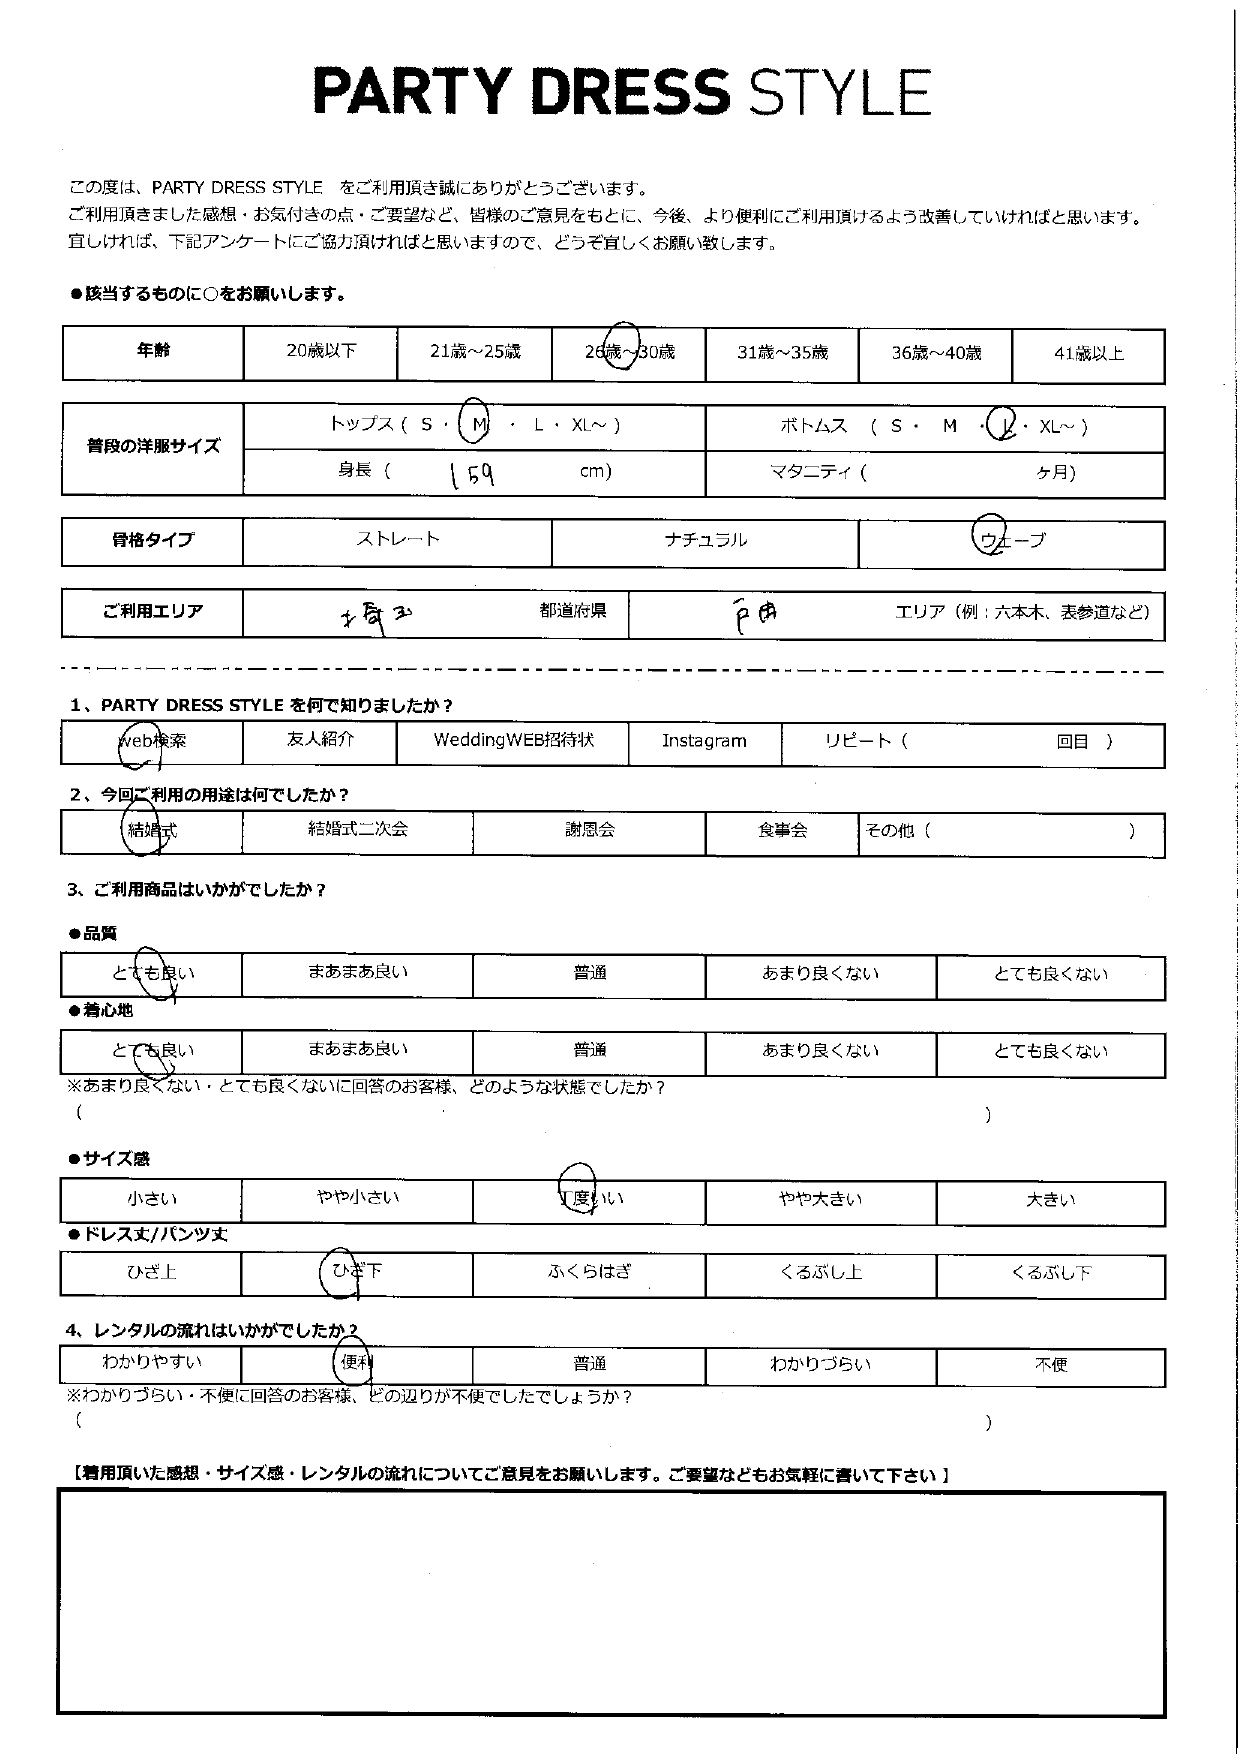 PARTY DRESS STYLE
この度は、PARTY DRESS STYLE をご利用頂き誠にありがとうございます。
ご利用頂きました感想・お気付きの点・ご要望など、皆様のご意見をもとに、今後、より便利にご利用頂けるよう改善していければと思います。
宜しければ、下記アンケートにご協力頂ければと思いますので、どうぞ宜しくお願い致します。
●該当するものに○をお願いします。
年齢 20歳以下 21歳～25歳 26歳～30歳 31歳～35歳 36歳～40歳 41歳以上
普段の洋服サイズ トップス ( S ・ M ・ L ・ XL～ ) ボトムス ( S ・ M ・ L ・ XL～ )
身長 ( 159 cm) マタニティ ( ヶ月)
骨格タイプ ストレート ナチュラル ウェーブ
ご利用エリア 埼玉 都道府県 戸田 エリア（例：六本木、表参道など）
1、PARTY DRESS STYLE を何で知りましたか？
web検索 友人紹介 WeddingWEB招待状 Instagram リピート ( 回目 )
2、今回ご利用の用途は何でしたか？
結婚式 結婚式二次会 謝恩会 食事会 その他 ( )
3、ご利用商品はいかがでしたか？
●品質
とても良い まあまあ良い 普通 あまり良くない とても良くない
●着心地
とても良い まあまあ良い 普通 あまり良くない とても良くない
※あまり良くない・とても良くないに回答のお客様、どのような状態でしたか？
( )
●サイズ感
小さい やや小さい 丁度いい やや大きい 大きい
●ドレス丈/パンツ丈
ひざ上 ひざ下 ふくらはぎ くるぶし上 くるぶし下
4、レンタルの流れはいかがでしたか？
わかりやすい 便利 普通 わかりづらい 不便
※わかりづらい・不便に回答のお客様、どの辺りが不便でしたでしょうか？
( )
【着用頂いた感想・サイズ感・レンタルの流れについてご意見をお願いします。ご要望などもお気軽に書いて下さい 】